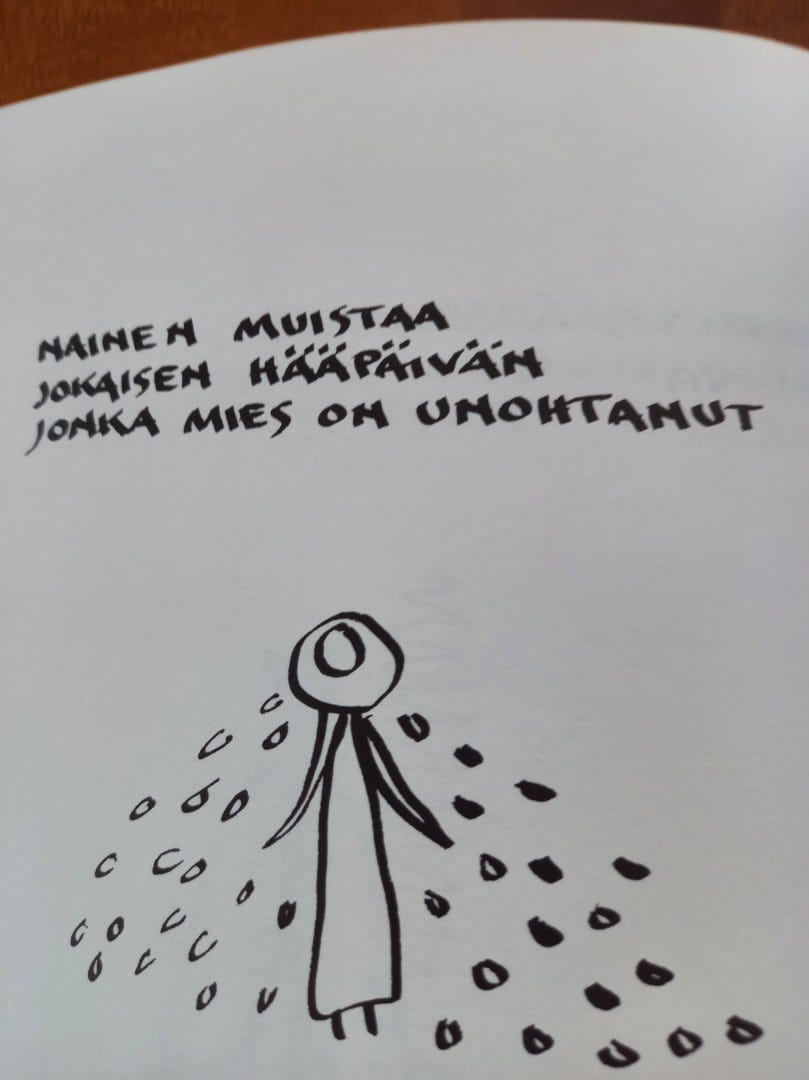 NAINEN MUISTAA
JOKAISEN HÄÄPÄIVÄN
JONKA MIES ON UNOHTANUT